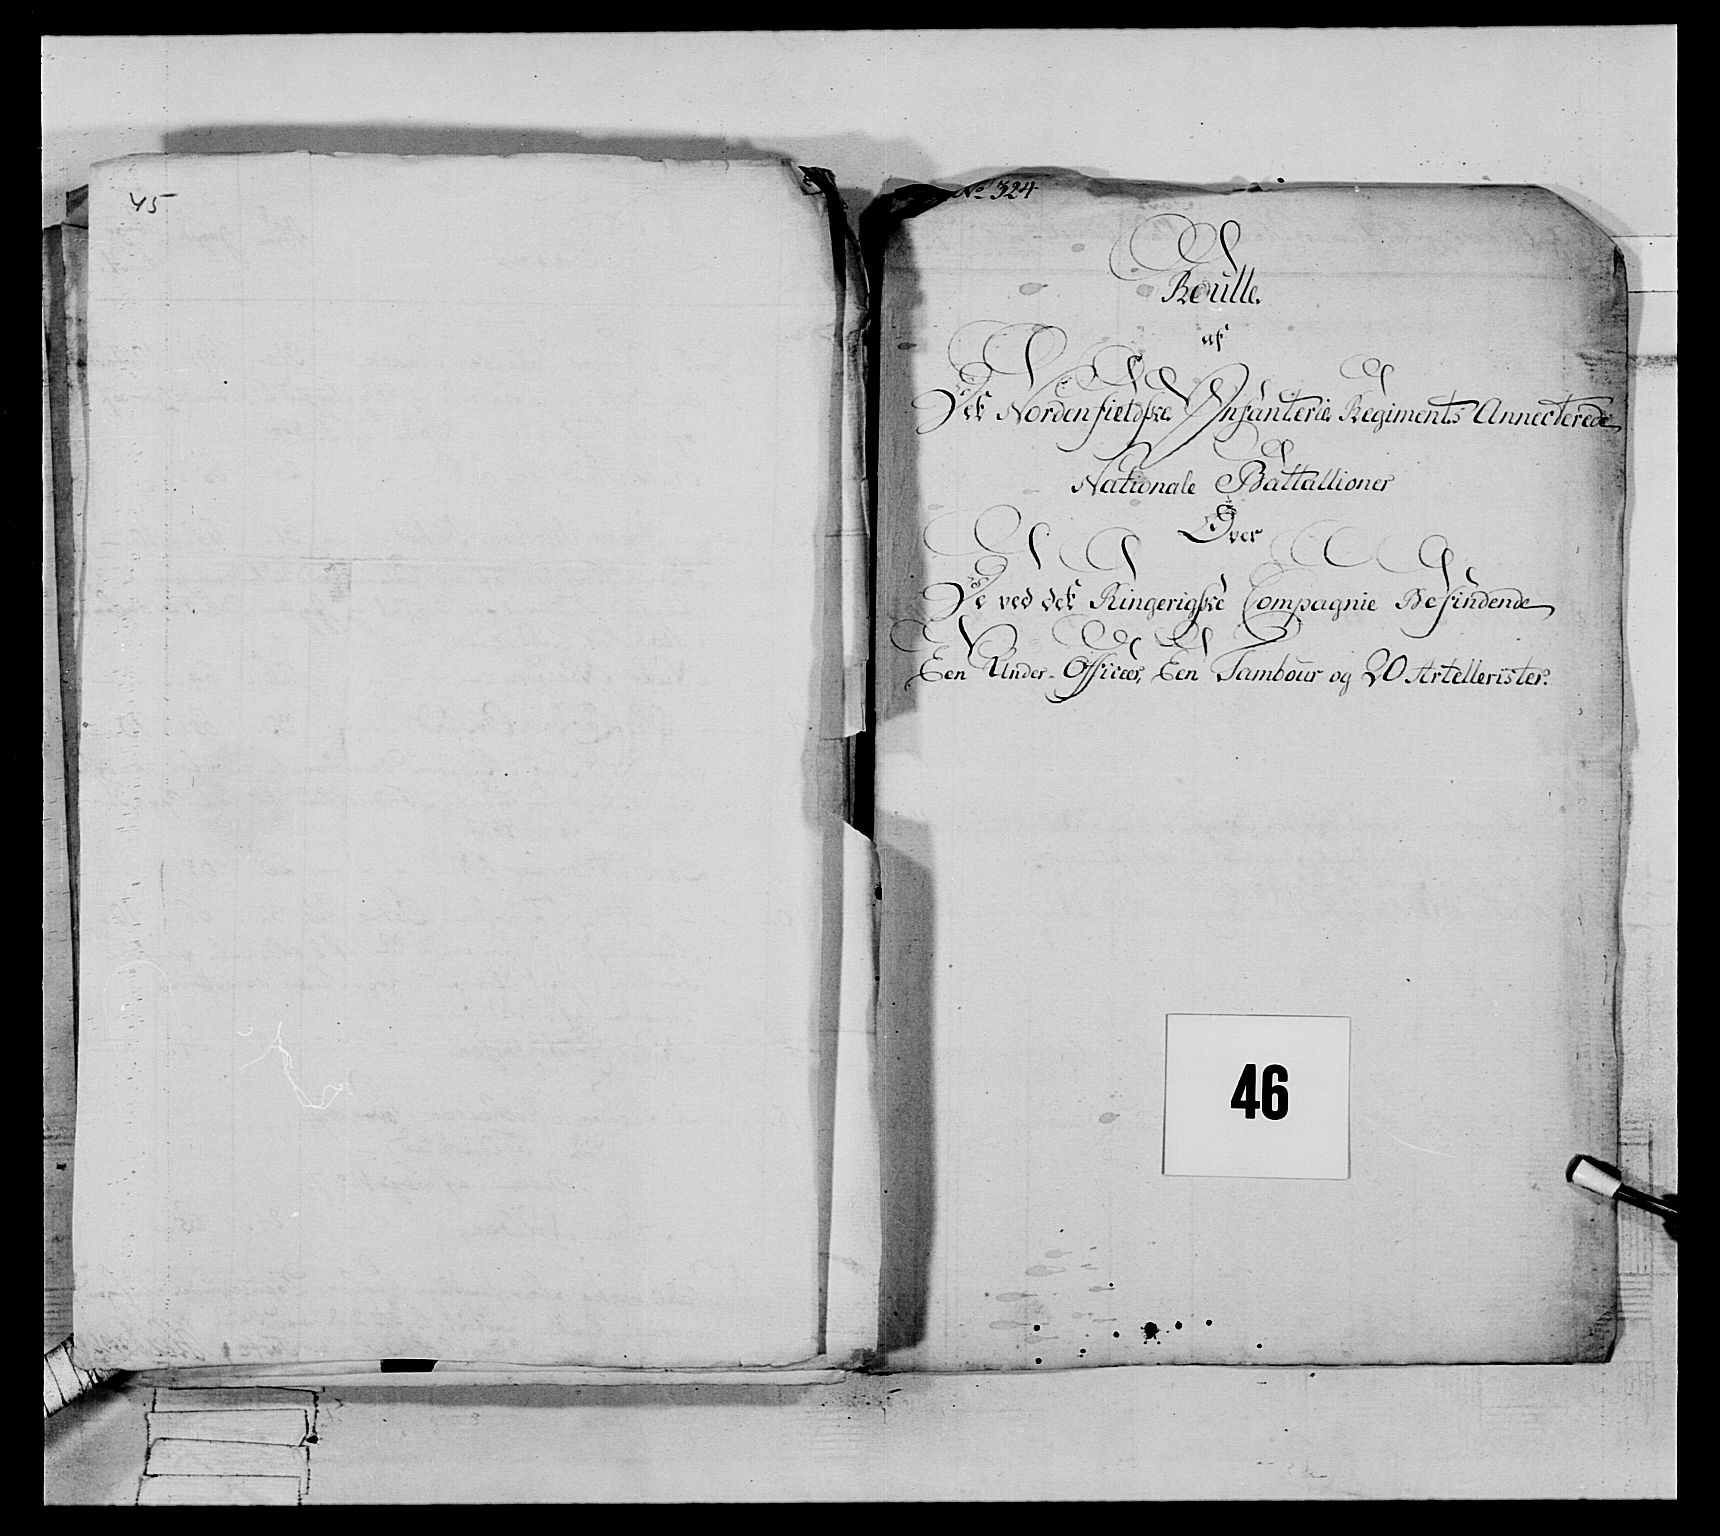 45
No 324
Roulle.
af
Det Nordenfieldske Infanterie Regiments Annecterede
Nationale Battallioner
Over
De ved det Ringerigske Compagnie Befindende
Een Under-Officeer, Een Tambour og 20 Artellerister.
46